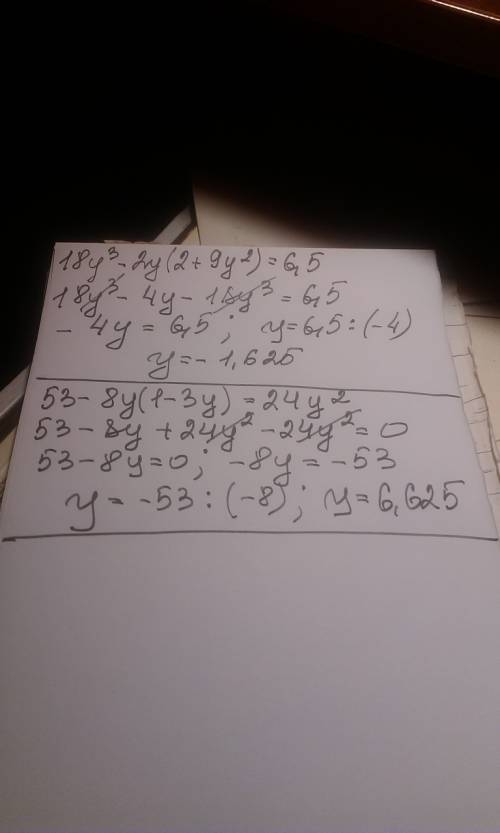 18y³ - 2y(2 + 9y²) = 6,5
18y³ - 4y - 18y³ = 6,5
- 4y = 6,5 ; y = 6,5 : (-4)
y = - 1,625
53 - 8y(1 - 3y) = 24y²
53 - 8y + 24y² - 24y² = 0
53 - 8y = 0 ; -8y = -53
y = -53 : (-8) ; y = 6,625